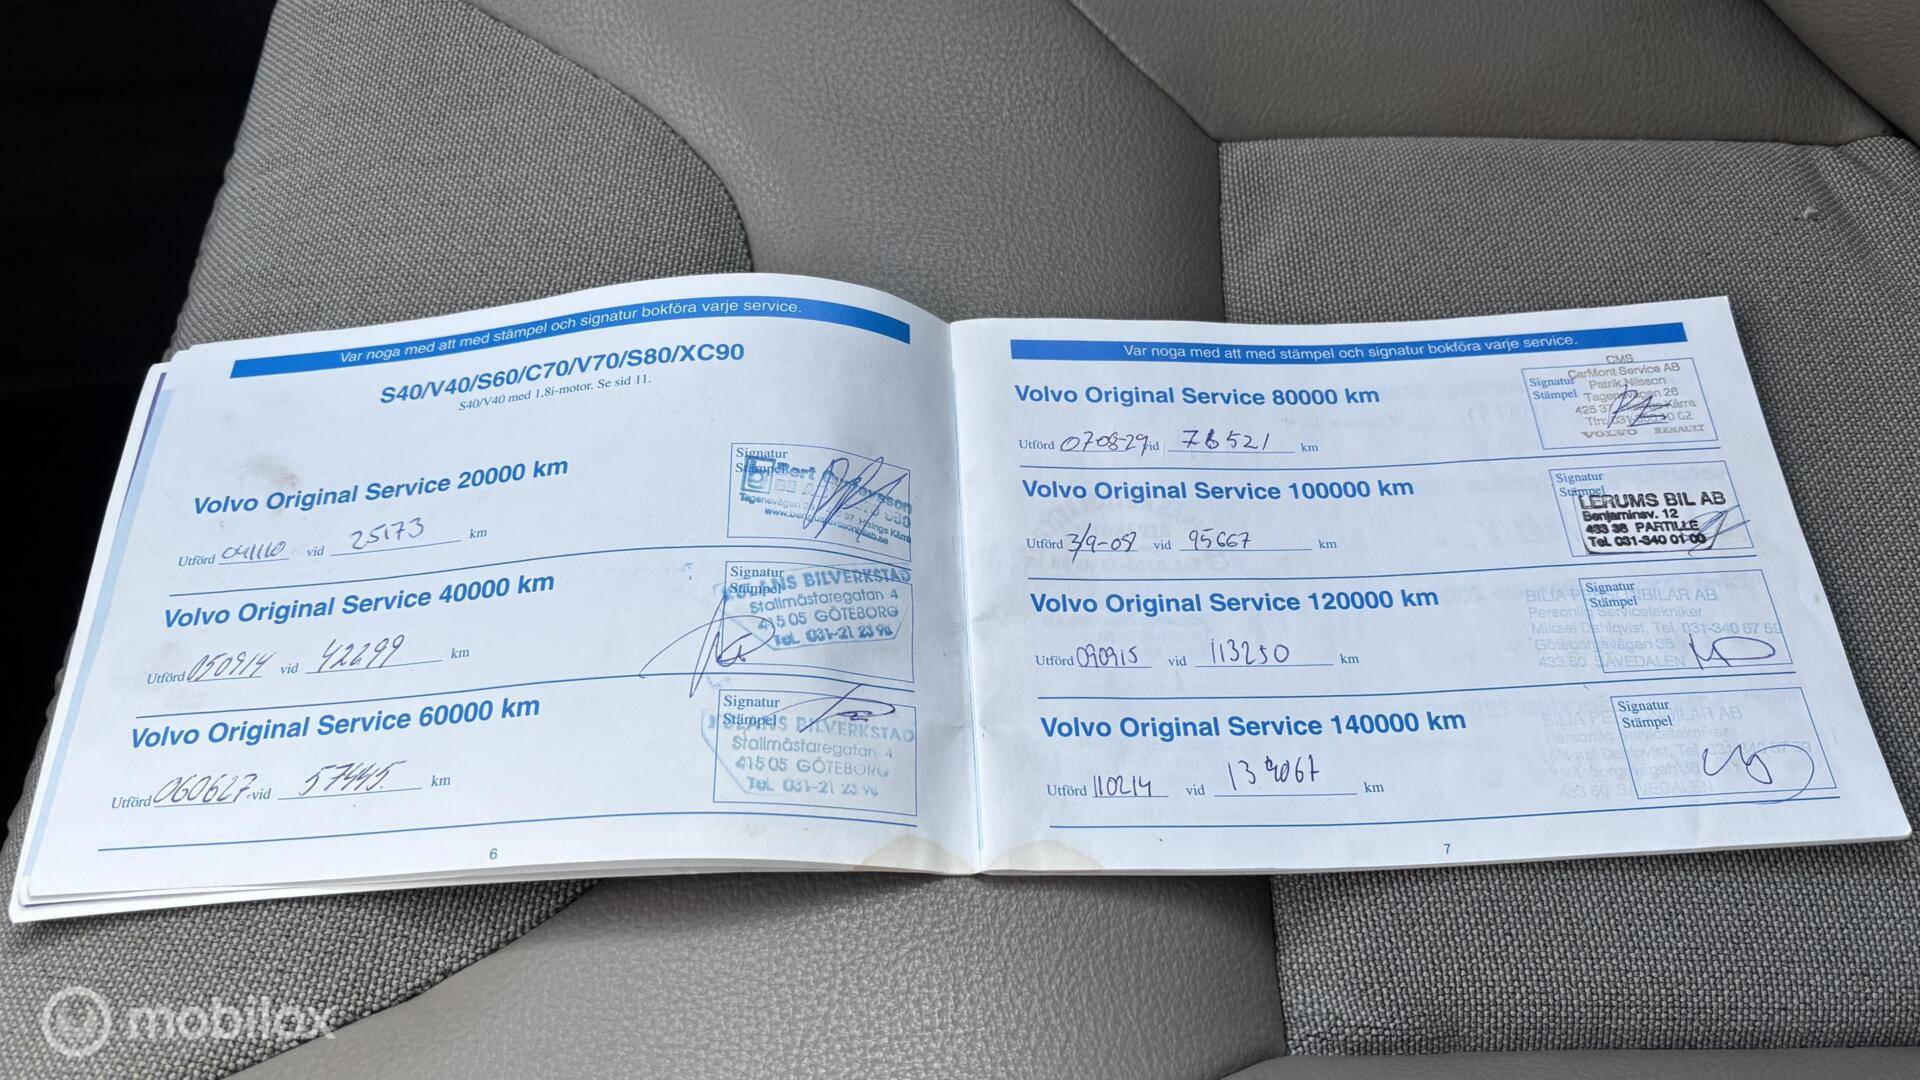 Var noga med att med stämpel och signatur bokföra varje service.
S40/V40/S60/C70/V70/S80/XC90
S40/V40 med 1,8i-motor. Se sid 11.
Volvo Original Service 20000 km
Utförd 041110 vid 25173 km
Signatur
Stämpel
Volvo Original Service 40000 km
Utförd 050914 vid 42299 km
Signatur
Stämpel
BILVERKSTAD
Stallmästaregatan 4
415 05 GÖTEBORG
Tel. 031-21 23 90
Volvo Original Service 60000 km
Utförd 060627 vid 57445 km
Signatur
Stämpel
BILVERKSTAD
Stallmästaregatan 4
415 05 GÖTEBORG
Tel. 031-21 23 90
6
Var noga med att med stämpel och signatur bokföra varje service.
Volvo Original Service 80000 km
Utförd 070829 vid 78521 km
Signatur
Stämpel
CMS
CarMont Service AB
Patrik Nilsson
Tagenevägen 26
425 37 Kärra
VOLVO RENAULT
Volvo Original Service 100000 km
Utförd 3/9-08 vid 95667 km
Signatur
Stämpel
LERUMS BIL AB
Benjaminsv. 12
433 38 PARTILLE
Tel. 031-340 01 00
Volvo Original Service 120000 km
Utförd 090915 vid 113250 km
Signatur
Stämpel
BILIA PERSONBILAR AB
Personlig Servicetekniker
Mikael Dahlqvist, Tel. 031-340 87 59
Göteborgsvägen 36
433 60 SÄVEDALEN
Volvo Original Service 140000 km
Utförd 110214 vid 134067 km
Signatur
Stämpel
BILIA PERSONBILAR AB
Personlig Servicetekniker
Mikael Dahlqvist, Tel. 031-340 87 59
Göteborgsvägen 36
433 60 SÄVEDALEN
7
mobilox